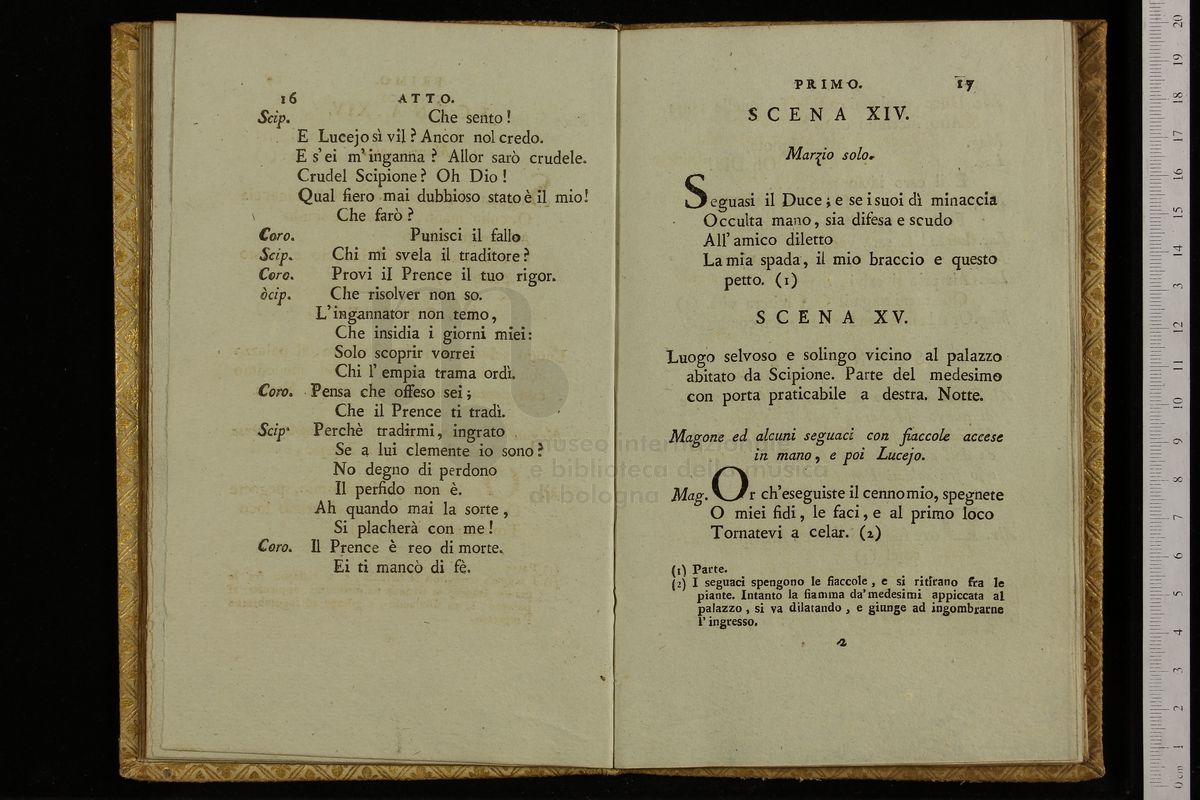 16 ATTO.
Scip. Che sento!
E Lucejo sì vil? Ancor nol credo.
E s'ei m'inganna? Allor sarò crudele.
Crudel Scipione? Oh Dio!
Qual fiero mai dubbioso stato è il mio!
Che farò?
Coro. Punisci il fallo
Scip. Chi mi svela il traditore?
Coro. Provi il Prence il tuo rigor.
òcip. Che risolver non so.
L'ingannator non temo,
Che insidia i giorni miei:
Solo scoprir vorrei
Chi l'empia trama ordì.
Coro. Pensa che offeso sei;
Che il Prence ti tradì.
Scip. Perchè tradirmi, ingrato
Se a lui clemente io sono?
No degno di perdono
Il perfido non è.
Ah quando mai la sorte,
Si placherà con me!
Coro. Il Prence è reo di morte.
Ei ti mancò di fè.
PRIMO. 17
SCENA XIV.
Marzio solo.
Seguasi il Duce; e se i suoi dì minaccia
Occulta mano, sia difesa e scudo
All'amico diletto
La mia spada, il mio braccio e questo
petto. (1)
SCENA XV.
Luogo selvoso e solingo vicino al palazzo
abitato da Scipione. Parte del medesimo
con porta praticabile a destra. Notte.
Magone ed alcuni seguaci con fiaccole accese
in mano, e poi Lucejo.
Mag. Or ch'eseguiste il cenno mio, spegnete
O miei fidi, le faci, e al primo loco
Tornatevi a celar. (2)
(1) Parte.
(2) I seguaci spengono le fiaccole, e si ritirano fra le
piante. Intanto la fiamma da'medesimi appiccata al
palazzo, si va dilatando, e giunge ad ingombrarne
l'ingresso.
2
museo internazionale
e biblioteca della musica
di bologna
0 cm 1 2 3 4 5 6 7 8 9 10 11 12 13 14 15 16 17 18 19 20